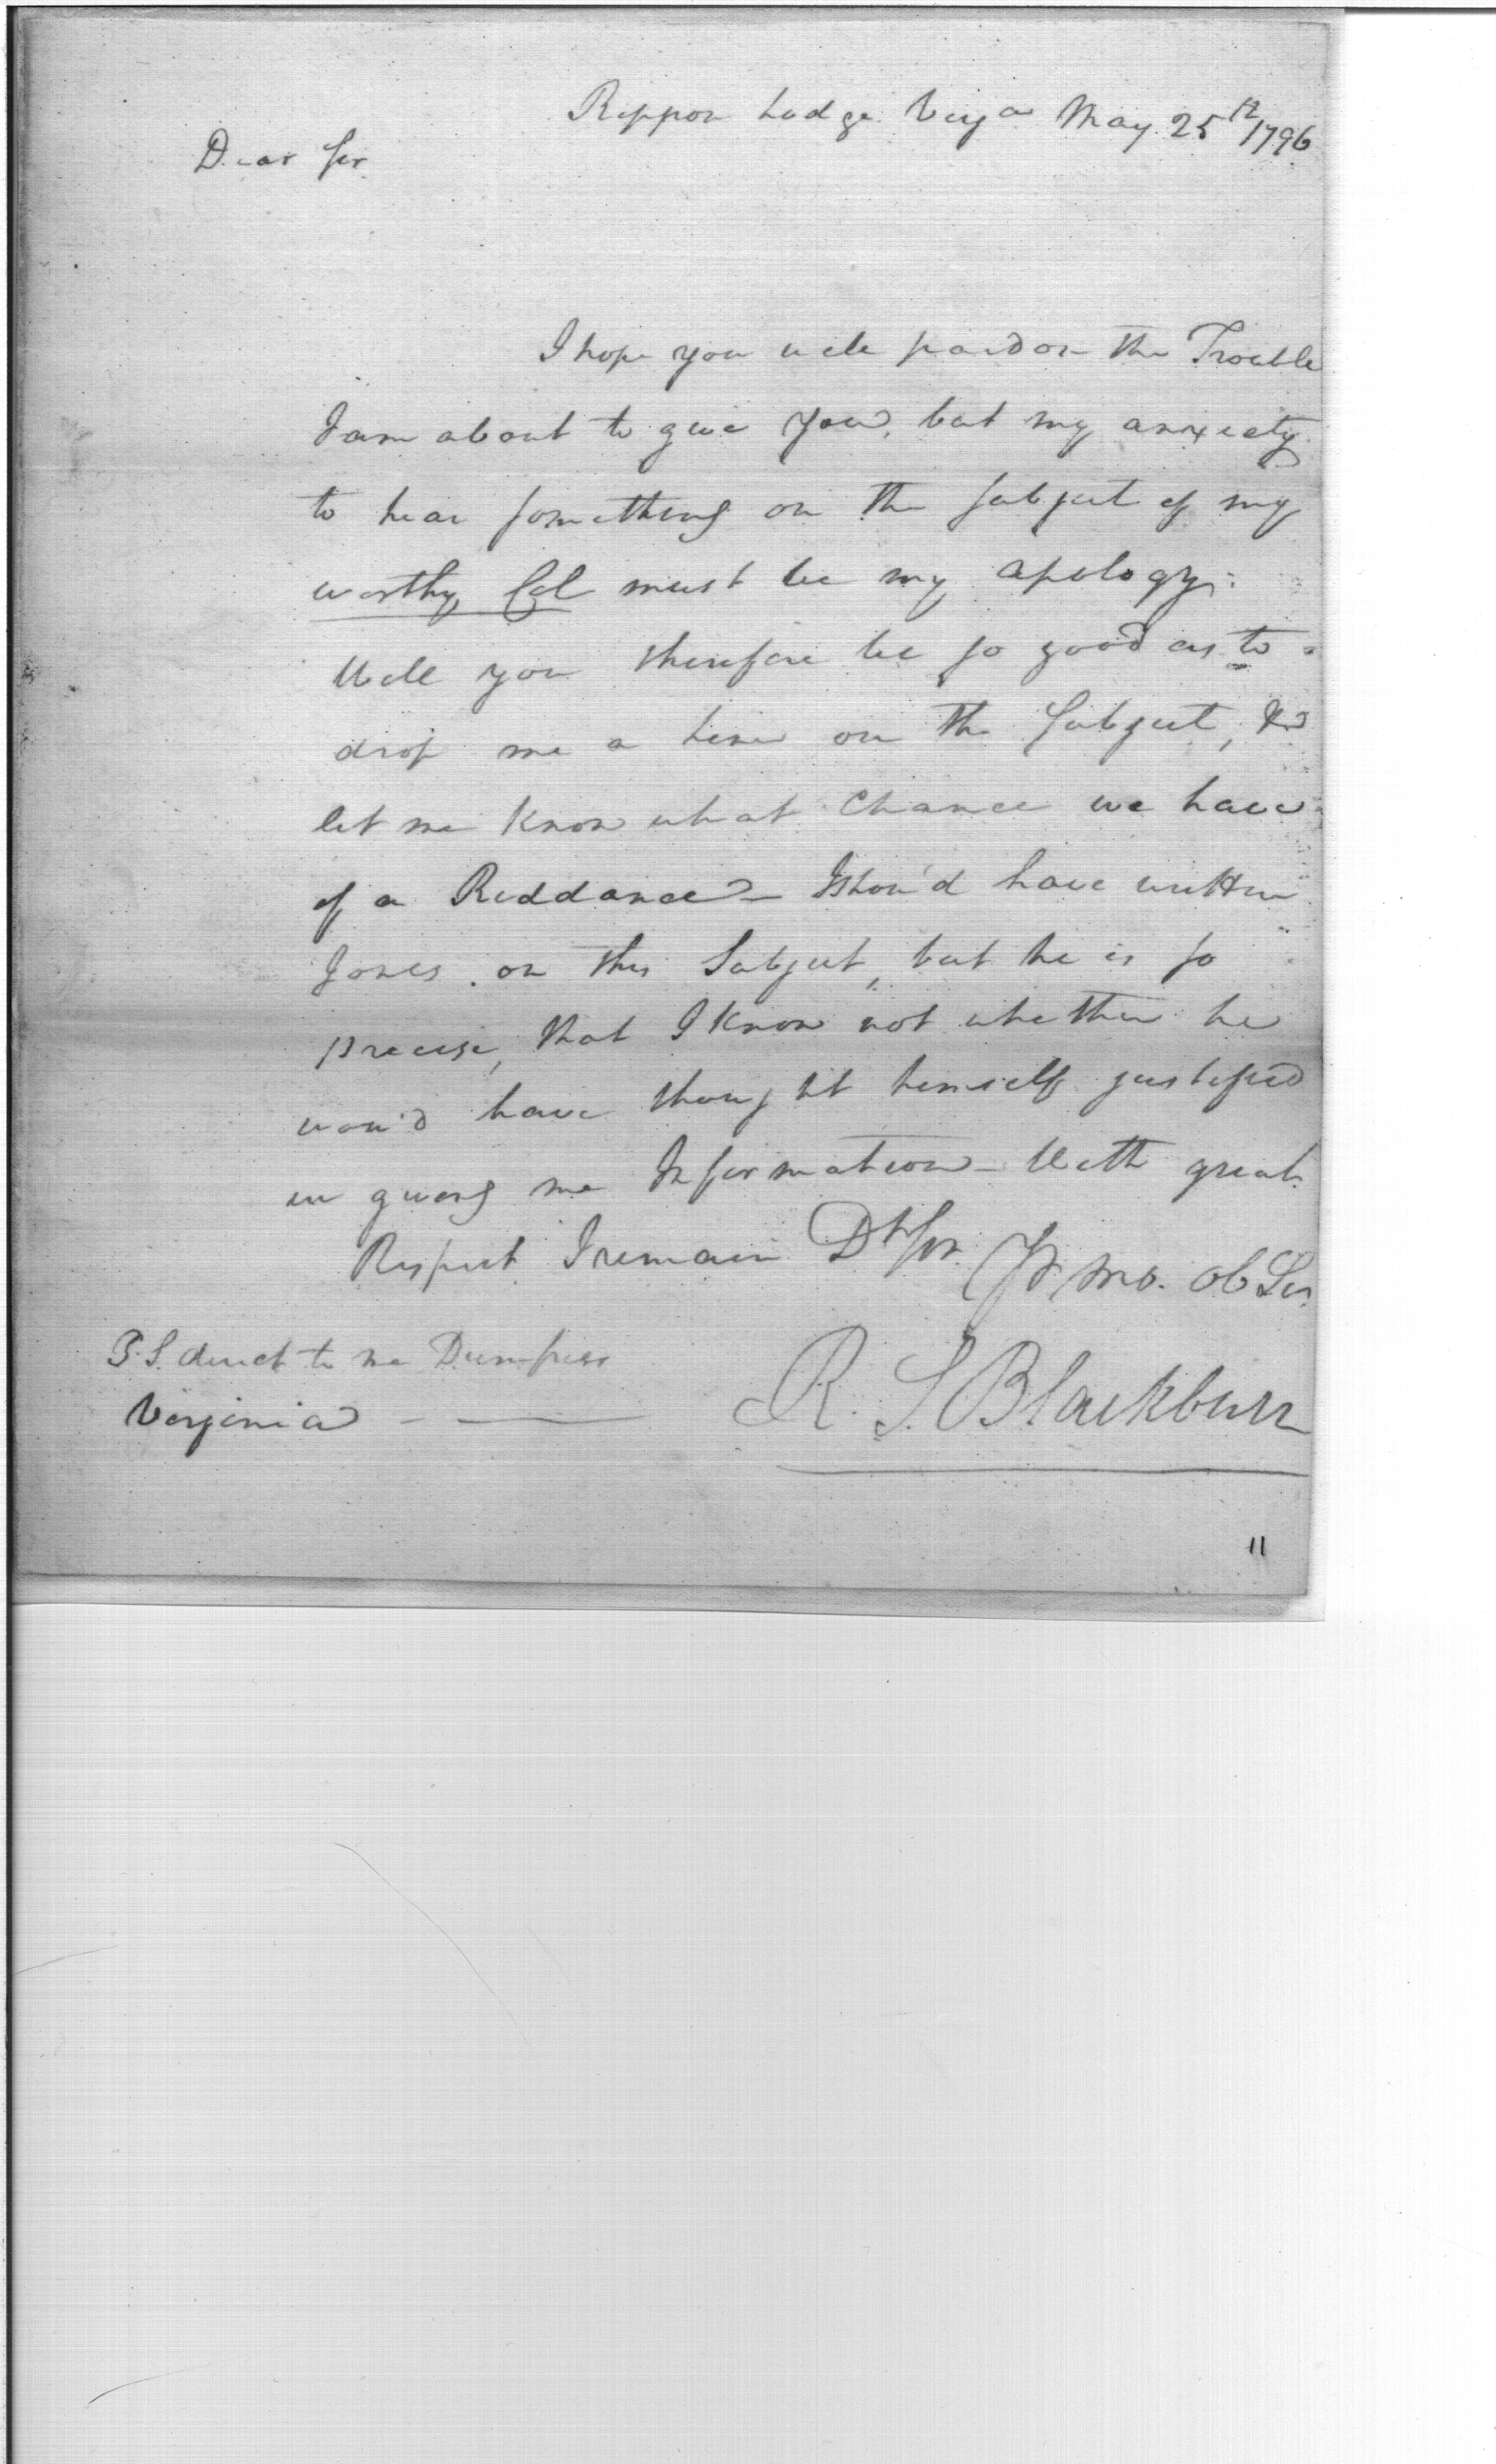 Rippon Lodge Virga May 25th 1796
Dear Sir
I hope you will pardon the Trouble
I am about to give you, but my anxiety
to hear something on the subject of my
worthy Col must be my apology.
Will you therefore be so good as to
drop me a line on the Subject, &
let me know what Chance we have
of a Riddance – I shou'd have written
Jones on this Subject, but he is so
precise, that I know not whether he
wou'd have thought himself justified
in giving me Information – With great
Respect I remain Dr Sir Yr Mo. Ob Ser
P.S. direct to me Dumfries
R. S. Blackburn
Virginia – –
11